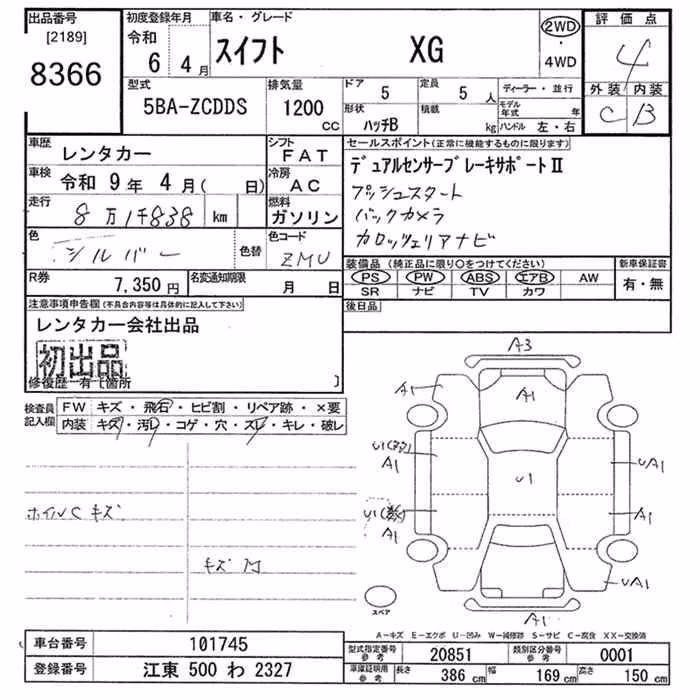 出品番号 初度登録年月 車名・グレード 2WD 評価点
[2189] 令和 スイフト XG ・ 4
8366 6年4月 4WD 外装 内装
型式 排気量 ドア 5 定員 5人 ディーラー・並行 C B
5BA-ZCDDS 1200cc 形状 ハッチB 積載 kg モデル年式 年
ハンドル 左・右
車歴 レンタカー シフト FAT セールスポイント(正常に機能するものに限ります)
車検 令和 9年 4月( 日) 冷房 AC デュアルセンサーブレーキサポートⅡ
走行 8万1千838 km 燃料 ガソリン プッシュスタート
バックカメラ
色 シルバー 色替 色コード ZMU カロッツェリアナビ
R券 7,350円 名変通知期限 月 日 装備品(純正品に限り○をつけてください) 新車保証書
PS PW ABS エアB AW 有・無
SR ナビ TV カワ
注意事項申告欄(不具合内容等は具体的に記入して下さい) 後日品
レンタカー会社出品
初出品
修復歴 有[箇所 ]
検査員 FW キズ・飛石・ヒビ割・リペア跡・×要
記入欄 内装 キズ・汚レ・コゲ・穴・スレ・キレ・破レ
A3
A1 A1
A1 U1 UA1
ホイルC キズ A1 A1
キズ
UA1
スペア A1
A-キズ E-エクボ U-凹み W-補修跡 S-サビ C-腐食 XX-交換済
車台番号 101745 型式指定番号 参考 20851 類別区分番号 参考 0001
登録番号 江東 500 わ 2327 車庫証明用 参考 長さ 386 cm 幅 169 cm 高さ 150 cm